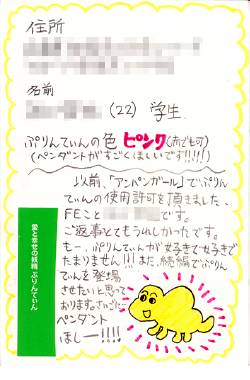 住所
名前
(22) 学生
ぷりんてぃんの色 ピンク(おでも可)
(ペンダントがすごくほしいです!!!!)
以前、「アンパンガール」でぷりん
てぃんの使用許可を頂きました、
FEこと です。
ご返事とてもうれしかったです。
もー、ぷりんてぃんが女子きで女子きで
たまりません!!!また、続編でぷりん
てぃんを登場
させたいと思って
おります。さいごに…
ペンダント
ほしー!!!!
愛と幸せの妖精 ぷりんてぃん